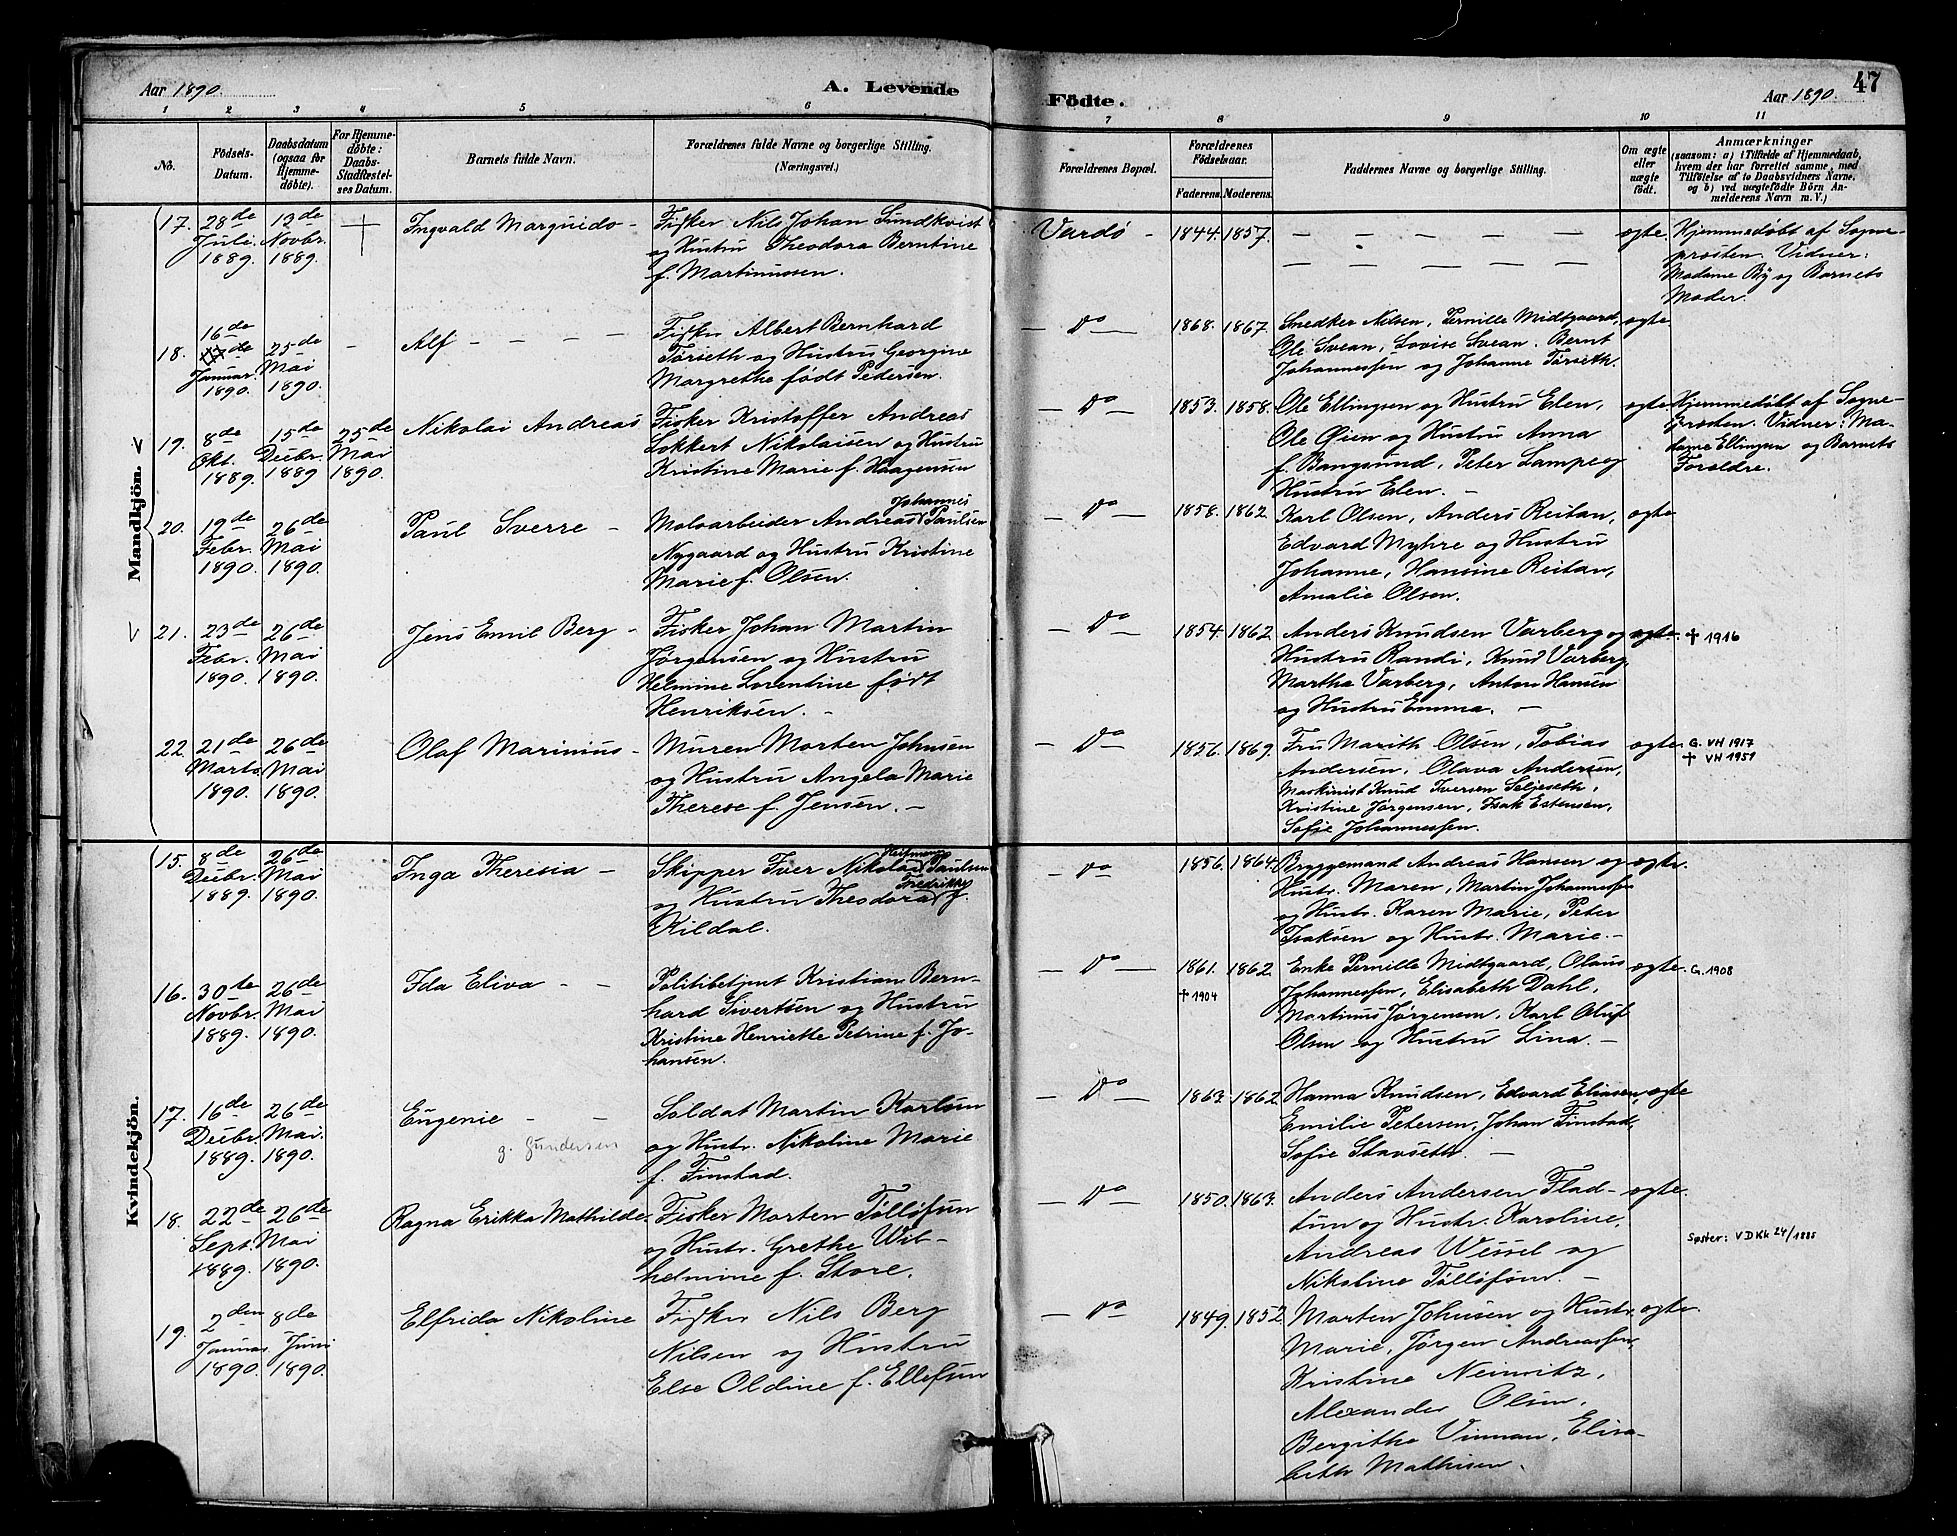 Aar 1890.
A. Levende
Födte.
Aar 1890.
47
1 2 3 4 5 6 7 8 9 10 11
No.
Födsels-
Datum.
Daabsdatum
(ogsaa for
Hjemme-
döbte).
For Hjemme-
döbte:
Daabs-
Stadfæstel-
ses Datum.
Barnets fulde Navn.
Forældrenes fulde Navne og borgerlige Stilling.
(Næringsvei.)
Forældrenes Bopæl.
Forældrenes
Födselsaar.
Faderens. Moderens.
Faddernes Navne og borgerlige Stilling.
Om ægte
eller
uægte
födt.
Anmærkninger
(saasom: a) i Tilfælde af Hjemmedaab,
hvem der har forrettet samme, med
Tilföielse af to Daabsvidners Navne,
og b) ved uægtefödte Börn An-
melderens Navn m. V.)
Mandkjön.
17. 28de Juli 1889.
13de Novbr. 1889.
Ingvald Marquido -
Fisker Nils Johan Sundkvist
og Hustru Theodora Berntine
f. Martinussen.
Vardø - 1844. 1857.
ægte.
Hjemmedøbt af Sogne-
prosten. Vidner:
Madame By og Barnets
Moder.
18. 16de Januar 1890.
25de Mai 1890.
Alf
Fisker Albert Bernhard
Tørseth og Hustru Georgine
Margrethe født Pedersen.
Do 1868. 1867.
Snedker Nilsen, Pernille Midtgaard,
Ole Svean, Lovise Svean. Bernt
Johannessen og Johanne Tørseth.
ægte.
19. 8de Okt. 1889.
15de Decbr. 1889
25de Mai 1890.
Nikolai Andreas
Fisker Kristoffer Andreas
Lokkert Nikolaisen og Hustru
Kristine Marie f. Haagensen
Do 1853. 1858.
Ole Ellingsen og Hustru Elen,
Ole Øien og Hustru Anna
f. Bangsund, Peter Lampe og
Hustru Elen. -
ægte.
Hjemmedøbt af Sogne-
prosten. Vidner: Ma-
dame Ellingsen og Barnets
Forældre.
20. 19de Febr. 1890.
26de Mai 1890.
Paul Sverre -
Johannes
Malvarbeider Andreas Paulsen
Nygaard og Hustru Kristine
Marie f. Olsen.
Do 1858. 1862.
Karl Olsen, Anders Reitan,
Edvard Myhre og Hustru
Johanne, Hansine Reitan,
Amalie Olsen.
ægte
21. 23de Febr. 1890.
26de Mai 1890.
Jens Emil Berg -
Fisker Johan Martin
Jørgensen og Hustru
Helmine Lorentine født
Henriksen. -
Do 1854. 1862
Anders Knudsen Varberg og
Hustru Randi, Knud Varberg
Martha Varberg, Anton Hansen
og Hustru Emma. -
ægte.
† 1916
22 21de Marts 1890.
26de Mai 1890.
Olaf Marinius -
Murer Morten Johnsen
og Hustru Angela Marie
Therese f. Jensen. -
Do 1856. 1869.
Fru Marith Olsen, Tobias
Andersen, Olava Andersen,
Maskinist Knud Iversen Seljeseth,
Kristine Jørgensen, Isak Estensen,
Sofie Johannessen.
ægte.
G. VH 1917
† VH 1951
Kvindekjön.
15. 8de Decbr. 1889.
26de Mai 1890.
Inga Theresia -
Skipper Iver Nikolai Paulsen
Fredrikke
og Hustru Theodora f.
Kildal.
Do 1856. 1864.
Bryggemand Andreas Hansen og
Hustr. Maren, Martin Johannessen
og Hustr. Karen Marie, Peter
Isaksen og Hustr. Marie. -
ægte.
16. 30te Novbr. 1889.
26de Mai 1890.
Ida Eliva - -
Politibetjent Kristian Bern-
hard Sivertsen og Hustru
Kristine Henriette Petrine f. Jo-
hansen.
Do 1861. 1862
† 1904
Enke Pernille Midtgaard, Olaus
Johannessen, Elisabeth Dahl,
Martinus Jørgensen, Karl Oluf
Olsen og Hustru Lina. -
ægte.
G. 1908
17. 16de Decbr. 1889.
26de Mai. 1890.
Eugenie - -
g. Gundersen
Soldat Martin Karlsen
og Hustr. Nikoline Marie
f. Finstad.
Do 1863. 1862
Hanna Knudsen, Edvard Eliasen,
Emilie Petersen, Johan Finstad,
Sofie Stavseth. -
ægte
18. 22de Sept. 1889.
26de Mai 1890.
Ragna Erikka Mathilde
Fisker Morten Tølløfsen
og Hustr. Grethe Wil-
helmine f. Store.
Do 1850. 1863.
Anders Andersen Flad-
tum og Hustr. Karoline,
Andreas Wessel og
Nikoline Tølløfsen. -
ægte.
Søster: VDKk 24/1885
19. 2den Januar 1890.
8de Juni 1890.
Elfrida Nikoline
Fisker Nils Berg
Nilsen og Hustru
Else Oldine f. Ellefsen
Do 1849. 1852
Morten Johnsen og Hustr.
Marie, Jørgen Andreassen,
Kristine Neimitz,
Alexander Olsen,
Bergitha Vinman, Elisa-
beth Mathisen.
ægte.